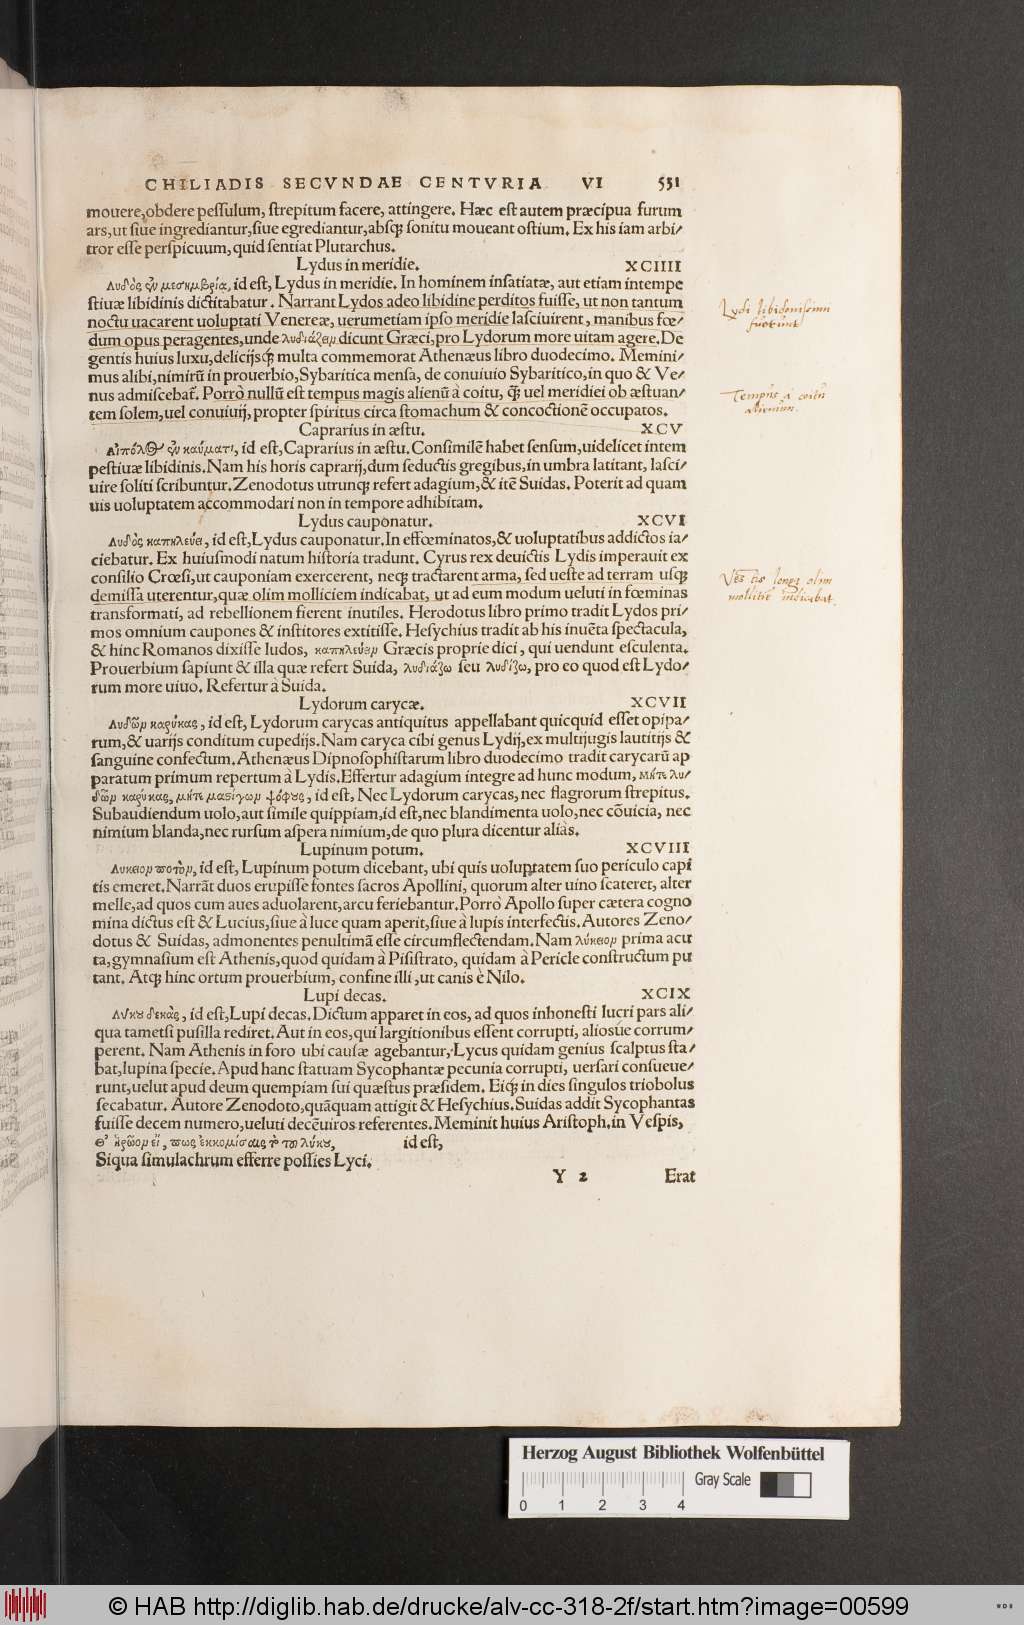 CHILIADIS SECVNDAE CENTVRIA VI 531
mouere, obdere pessulum, strepitum facere, attingere. Hæc est autem præcipua furum
ars, ut siue ingrediantur, siue egrediantur, absq; sonitu moueant ostium. Ex his iam arbi/
tror esse perspicuum, quid sentiat Plutarchus.
Lydus in meridie. XCIIII
Λυδὸς ἐν μεσημβρίᾳ, id est, Lydus in meridie. In hominem insatiatæ, aut etiam intempe
stiuæ libidinis dictitabatur. Narrant Lydos adeo libidine perditos fuisse, ut non tantum
noctu uacarent uoluptati Venereæ, uerumetiam ipso meridie lasciuirent, manibus fœ/
dum opus peragentes, unde λυδιάζειν dicunt Græci, pro Lydorum more uitam agere. De
gentis huius luxu, delicijsq; multa commemorat Athenæus libro duodecimo. Memini/
mus alibi, nimirũ in prouerbio, Sybaritica mensa, de conuiuio Sybaritico, in quo & Ve/
nus admiscebat. Porrò nullũ est tempus magis alienũ à coitu, q̃ uel meridiei ob æstuan/
tem solem, uel conuiuij, propter spiritus circa stomachum & concoctionẽ occupatos.
Caprarius in æstu. XCV
Αἰπόλος ἐν καύματι, id est, Caprarius in æstu. Consimilẽ habet sensum, uidelicet intem
pestiuæ libidinis. Nam his horis caprarij, dum seductis gregibus, in umbra latitant, lasci/
uire soliti scribuntur. Zenodotus utrunq; refert adagium, & itẽ Suidas. Poterit ad quam
uis uoluptatem accommodari non in tempore adhibitam.
Lydus cauponatur. XCVI
Λυδὸς καπηλεύει, id est, Lydus cauponatur. In effœminatos, & uoluptatibus addictos ia/
ciebatur. Ex huiusmodi natum historia tradunt. Cyrus rex deuictis Lydis imperauit ex
consilio Crœsi, ut cauponiam exercerent, neq; tractarent arma, sed ueste ad terram usq;
demissa uterentur, quæ olim molliciem indicabat, ut ad eum modum ueluti in fœminas
transformati, ad rebellionem fierent inutiles. Herodotus libro primo tradit Lydos pri/
mos omnium caupones & institores extitisse. Hesychius tradit ab his inuẽta spectacula,
& hinc Romanos dixisse ludos, καπηλεύειν Græcis proprie dici, qui uendunt esculenta.
Prouerbium sapiunt & illa quæ refert Suida, λυδιάζω seu λυδίζω, pro eo quod est Lydo/
rum more uiuo. Refertur à Suida.
Lydorum carycæ. XCVII
Λυδῶν καρύκας, id est, Lydorum carycas antiquitus appellabant quicquid esset opipa/
rum, & uarijs conditum cupedijs. Nam caryca cibi genus Lydij, ex multijugis lautitijs &
sanguine confectum. Athenæus Dipnosophistarum libro duodecimo tradit carycarũ ap
paratum primum repertum à Lydis. Effertur adagium integre ad hunc modum, μήτε λυ/
δῶν καρύκας, μήτε μαστίγων ψόφους, id est, Nec Lydorum carycas, nec flagrorum strepitus.
Subaudiendum uolo, aut simile quippiam, id est, nec blandimenta uolo, nec cõuicia, nec
nimium blanda, nec rursum aspera nimium, de quo plura dicentur aliàs.
Lupinum potum. XCVIII
Λυκεῖον ποτὸν, id est, Lupinum potum dicebant, ubi quis uoluptatem suo periculo capi
tis emeret. Narrãt duos erupisse fontes sacros Apollini, quorum alter uino scateret, alter
melle, ad quos cum aues aduolarent, arcu feriebantur. Porrò Apollo super cætera cogno
mina dictus est & Lucius, siue à luce quam aperit, siue à lupis interfectis. Autores Zeno/
dotus & Suidas, admonentes penultimã esse circumflectendam. Nam λύκειον prima acu
ta, gymnasium est Athenis, quod quidam à Pisistrato, quidam à Pericle constructum pu
tant. Atq; hinc ortum prouerbium, confine illi, ut canis è Nilo.
Lupi decas. XCIX
Λύκου δεκὰς, id est, Lupi decas. Dictum apparet in eos, ad quos inhonesti lucri pars ali/
qua tametsi pusilla rediret. Aut in eos, qui largitionibus essent corrupti, aliosue corrum/
perent. Nam Athenis in foro ubi causæ agebantur, Lycus quidam genius scalptus sta/
bat, lupina specie. Apud hanc statuam Sycophantæ pecunia corrupti, uersari consueue/
runt, uelut apud deum quempiam sui quæstus præsidem. Eiq; in dies singulos triobolus
secabatur. Autore Zenodoto, quãquam attigit & Hesychius. Suidas addit Sycophantas
fuisse decem numero, ueluti decẽuiros referentes. Meminit huius Aristoph. in Vespis,
Θ' ἡρῷον εἴ πως ἐκκομίσαις τὸ τοῦ λύκου, id est,
Siqua simulachrum efferre possies Lyci.
Y 2 Erat
Lydi libidinosissimi
fuerunt
Tempus à coitu
alienum.
Vestis longa olim
mollitiẽ indicabat.
Herzog August Bibliothek Wolfenbüttel
0 1 2 3 4 Gray Scale
© HAB http://diglib.hab.de/drucke/alv-cc-318-2f/start.htm?image=00599